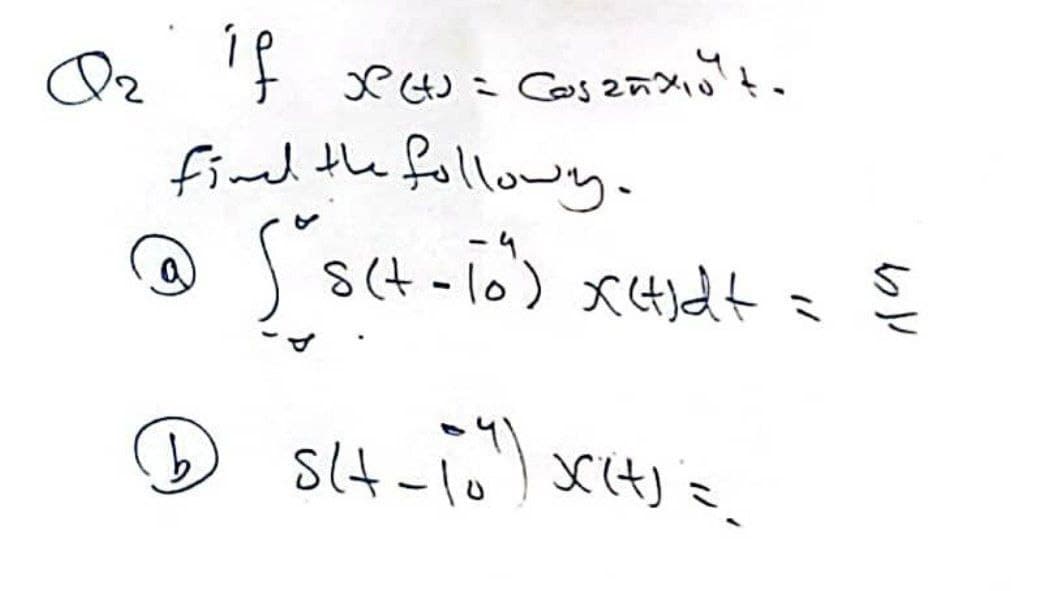 Q2 if x(t) = Cos 2π×10⁴ t.
find the following.
ⓐ ∫_{-∞}^{∞} δ(t - 10⁻⁴) x(t)dt = 5
ⓑ δ(t - 10⁻⁴) x(t) =